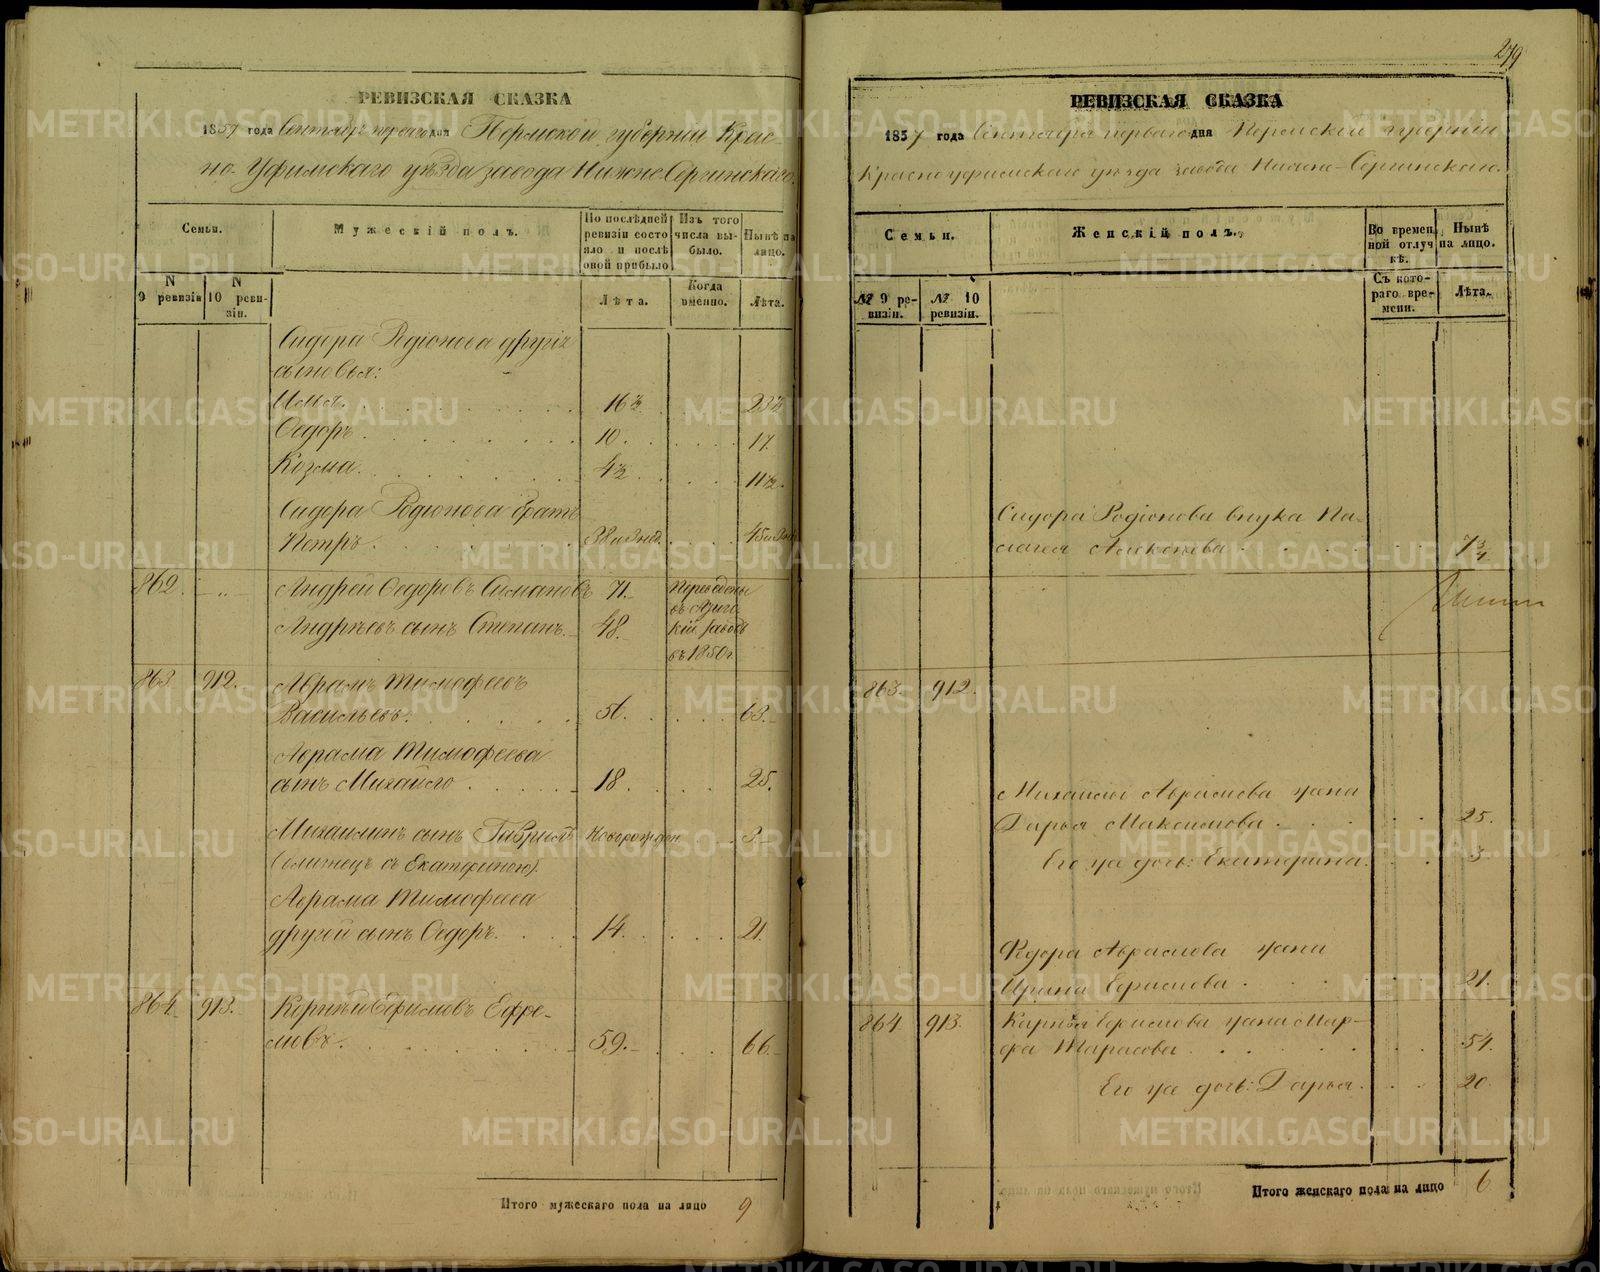 РЕВИЗСКАЯ СКАЗКА
1857 года Сентября перваго дня Пермской губерніи Крас-
но-Уфимскаго уѣзда завода Нижне-Сергинскаго.
Семьи.
Мужескій полъ.
По послѣдней ревизіи состояло и послѣ оной прибыло
Изъ того числа выбыло.
Нынѣ на лицо.
N 9 ревизіи
N 10 ревизіи.
Лѣта.
Когда именно.
Лѣта.
Сидора Родіонова другіе
сыновья:
Илья 16½ 23½
Ѳедоръ 10. 17.
Козма 4½ 11½.
Сидора Родіонова братъ
Петръ 45
862. Андрей Ѳедоровъ Симановъ 71. Переведены
въ
Андреевъ сынъ Степанъ 48. кій заводъ
въ 1850 г.
863. 912. Аврамъ Тимофеевъ
Васильевъ 56. 63.
Аврама Тимофеева
сынъ Михайло 18. 25.
Михайлинъ сынъ Гаврилъ Новорожден. 3.
(близнецъ съ Екатериною).
Аврама Тимофеева
другой сынъ Ѳедоръ. 14. 21.
864. 913. Корнило Ефимовъ Ефре-
мовъ. 59. 66.
Итого мужескаго пола на лицо 9
279
РЕВИЗСКАЯ СКАЗКА
1857 года Сентября перваго дня Пермской губерніи
Красноуфимскаго уѣзда завода Нижне-Сергинскаго.
Семьи.
Женскій полъ.
Во временной отлучкѣ.
Нынѣ на лицо.
№ 9 ревизіи.
№ 10 ревизіи.
Съ котораго времени.
Лѣта.
Сидора Родіонова внука Па-
лагея Алексѣева 7¾
863. 912.
Михайлы Аврамова жена
Дарья Максимова 25.
Его же дочь: Екатерина. 3
Ѳедора Аврамова жена
Ирина 21.
864. 913. жена Мар-
фа Тарасова 54.
Его же дочь: Дарья. 20.
Итого женскаго пола на лицо 6
METRIKI.GASO-URAL.RU